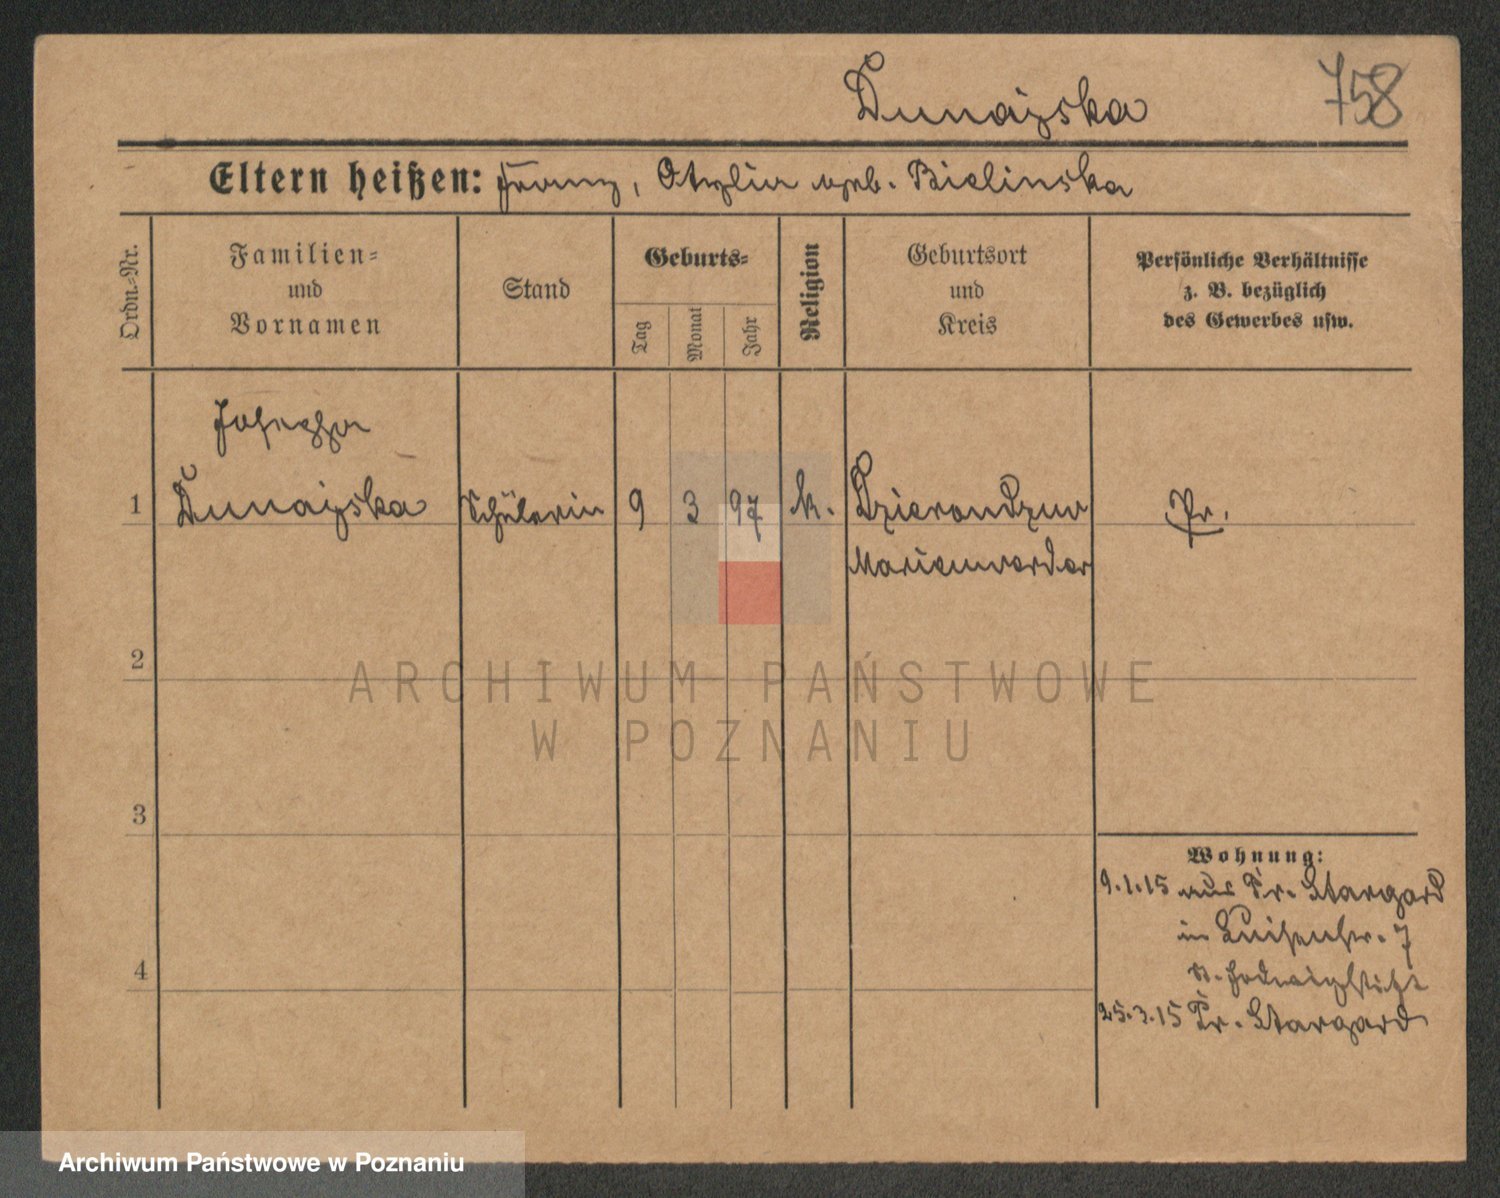 Dunajska
758
Eltern heißen: Franz, Otylia geb. Bielinska
Ordn.-Nr.
Familien-
und
Vornamen
Stand
Geburts-
Tag
Monat
Jahr
Religion
Geburtsort
und
Kreis
Persönliche Verhältnisse
z. B. bezüglich
des Gewerbes usw.
Josepha
1 Dunajska Schülerin 9 3 97 k. Dzierondzno Pr.
Marienwerder
2
ARCHIWUM PAŃSTWOWE
W POZNANIU
3
Wohnung:
9.1.15 aus Pr. Stargard
in Luisenstr. 7
St. Hedwigstift
4
25.3.15 Pr. Stargard
Archiwum Państwowe w Poznaniu